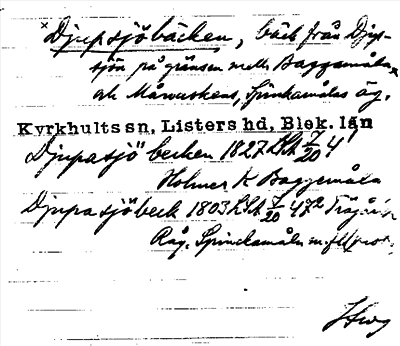 Djupsjöbäcken, bäck från Djup-
sjön på gränsen mell. Baggamåla
och Månaskens, Spinkamålas äg.
Kyrkhults sn, Listers hd, Blek. län
Djupasjö becken 1827 LSA 7/20 4¹
Holmar K Baggemåla
Djupa sjöbeck 1803 LSA 7/20 47²
Råg. Spinckamåla m. fl.